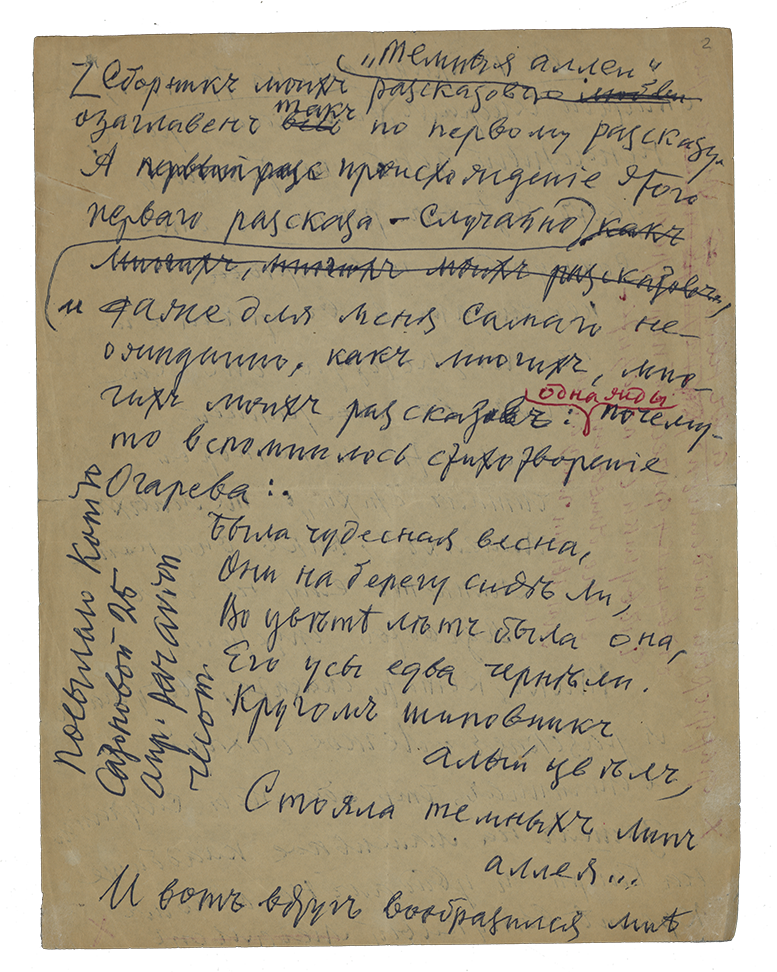 2
„Темныя аллеи"
Z Сборникъ моихъ разсказовъ о любви
такъ
озаглавенъ весь по первому разсказу.
А первый разс происхожденiе этого
перваго разсказа – случайно, какъ
многихъ, многихъ моихъ разсказовъ,
и даже для меня самаго не-
ожиданно, какъ многихъ, мно-
однажды
гихъ моихъ разсказовъ: почему-
то вспомнилось стихотворенiе
Огарева:.
Была чудесная весна,
Они на берегу сидѣли,
Во цвѣтѣ лѣтъ была она,
Его усы едва чернѣли.
Кругомъ шиповникъ
алый цвѣлъ,
Стояла темныхъ липъ
аллея...
И вотъ вдругъ вообразился мнѣ
Посылаю
Сазоновой 25
апр. par avion